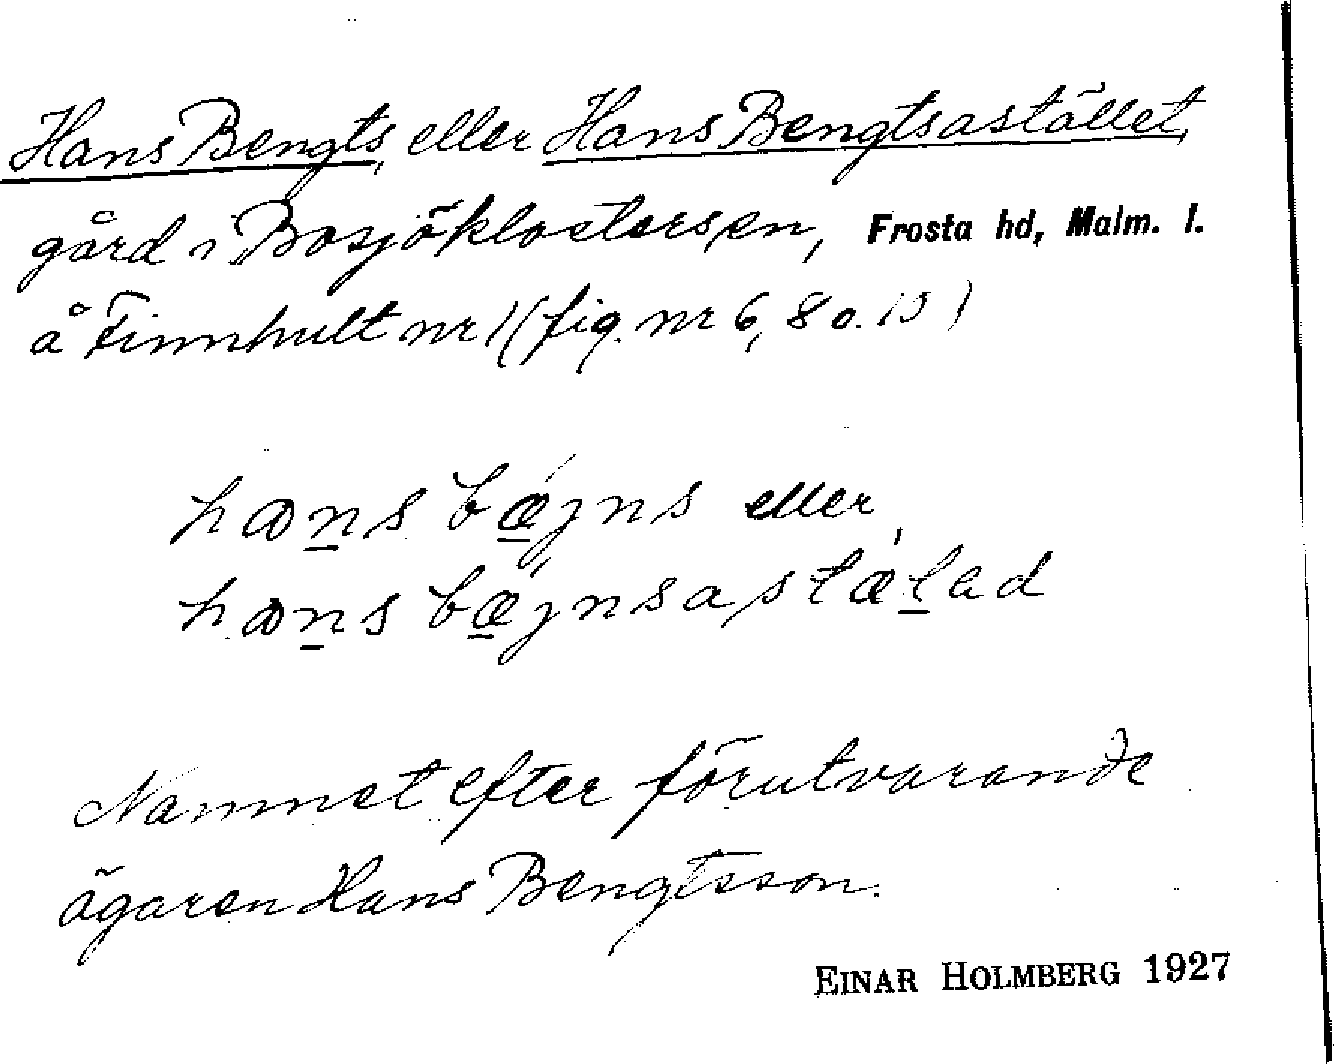 Hans Bengts, eller Hans Bengtsastället,
gård i Bosjöklosters sn, Frosta hd, Malm. l.
å Finnhult nr 1 (fig. nr 6, 8 o. 15)
hans bæjns eller
hans bæjnsastælad
Namnet efter förutvarande
ägaren Hans Bengtsson.
EINAR HOLMBERG 1927